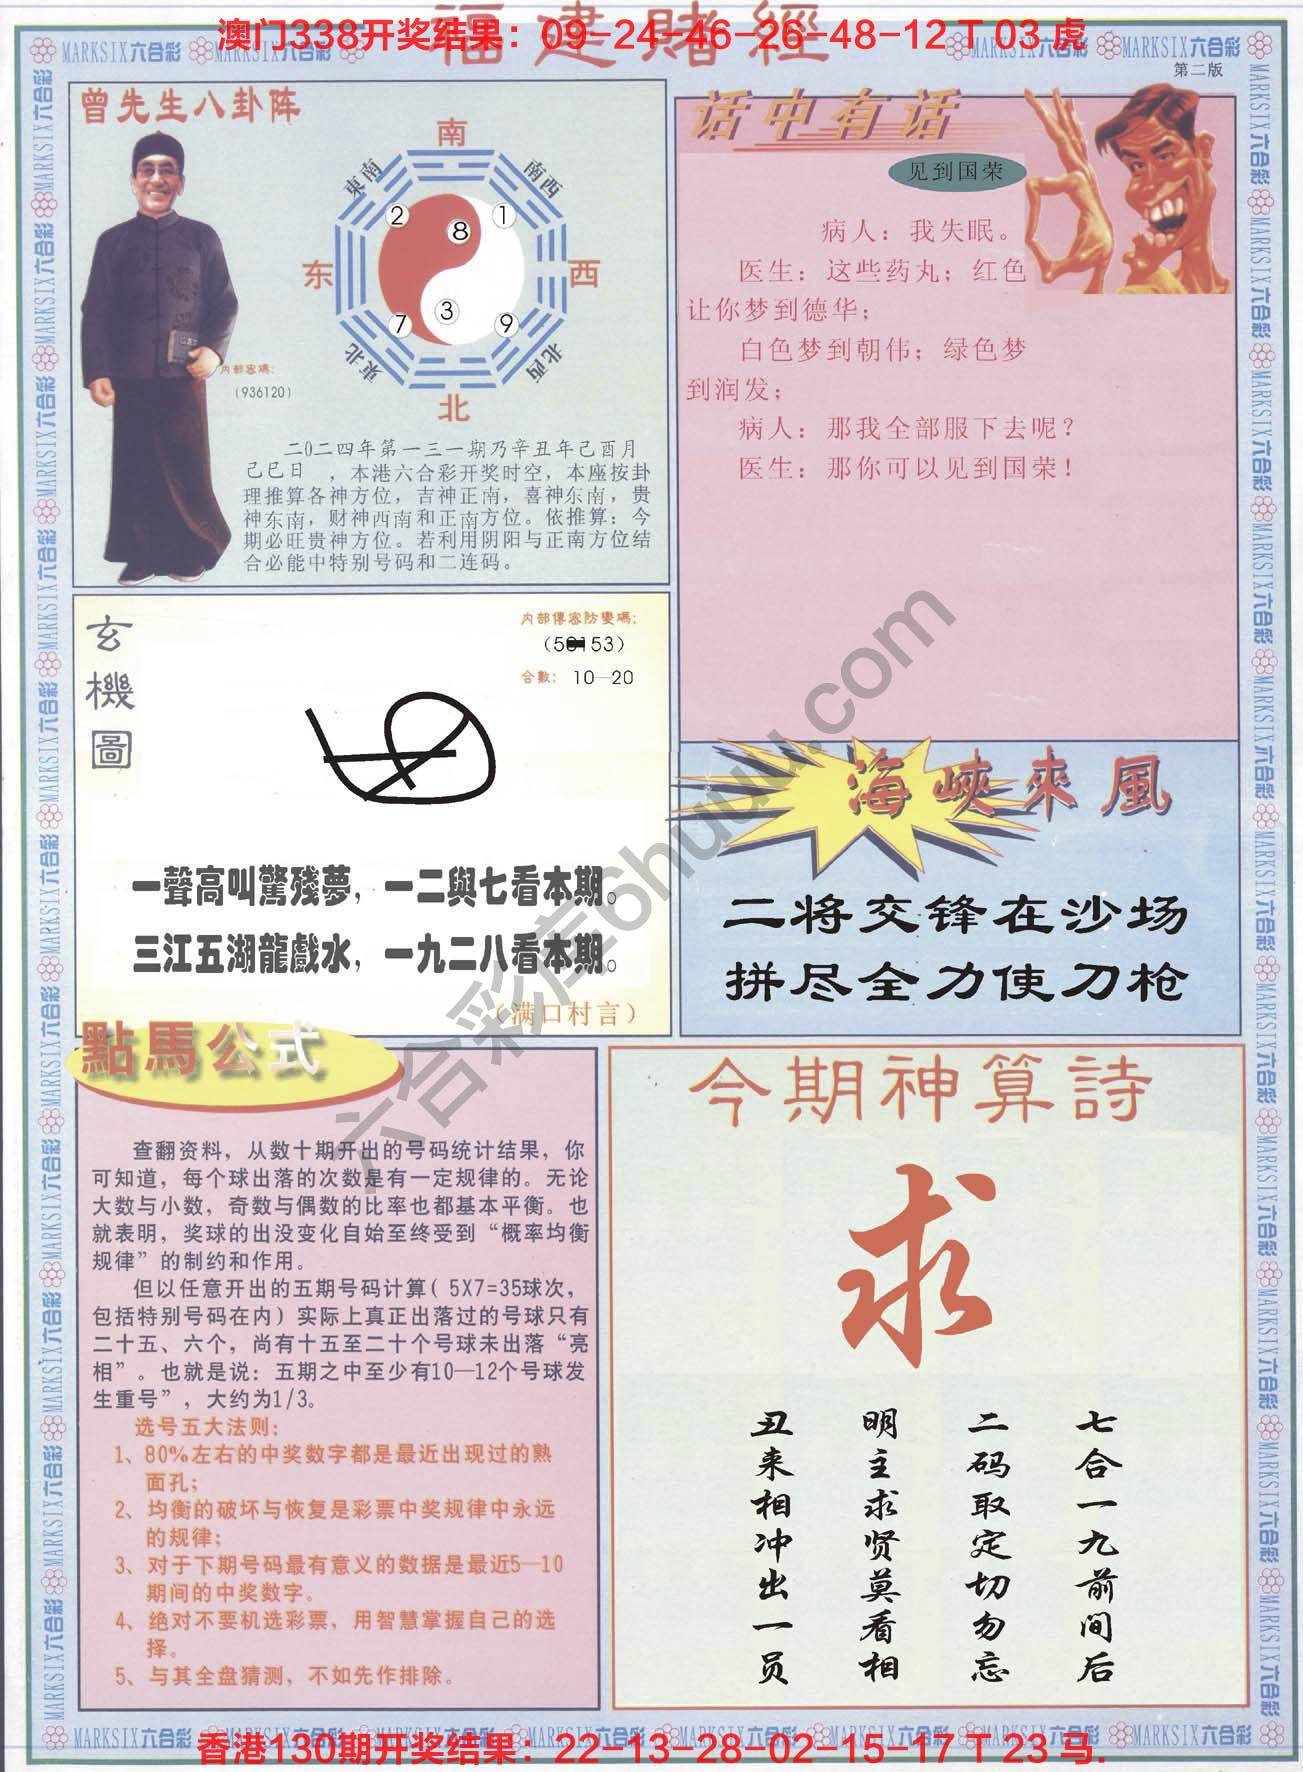 福建賭經
澳门338开奖结果：09-24-46-26-48-12 T 03 虎
MARKSIX六合彩
第二版
曾先生八卦阵
南
東南
南西
2
1
8
东
西
3
7
9
東北
北西
北
内部密碼：
（936120）
二0二四年第一三一期乃辛丑年己酉月
己巳日，本港六合彩开奖时空，本座按卦
理推算各神方位，吉神正南，喜神东南，贵
神东南，财神西南和正南方位。依推算：今
期必旺贵神方位。若利用阴阳与正南方位结
合必能中特别号码和二连码。
话中有话
见到国荣
病人：我失眠。
医生：这些药丸；红色
让你梦到德华；
白色梦到朝伟；绿色梦
到润发；
病人：那我全部服下去呢？
医生：那你可以见到国荣！
玄機圖
内部傳密防變碼：
合數：10—20
一聲高叫驚殘夢，一二與七看本期。
三江五湖龍戲水，一九二八看本期。
（满口村言）
海峽來風
二将交锋在沙场
拼尽全力使刀枪
點馬公式
查翻资料，从数十期开出的号码统计结果，你
可知道，每个球出落的次数是有一定规律的。无论
大数与小数，奇数与偶数的比率也都基本平衡。也
就表明，奖球的出没变化自始至终受到“概率均衡
规律”的制约和作用。
但以任意开出的五期号码计算（5X7=35球次，
包括特别号码在内）实际上真正出落过的号球只有
二十五、六个，尚有十五至二十个号球未出落“亮
相”。也就是说：五期之中至少有10—12个号球发
生重号”，大约为1/3。
选号五大法则：
1、80%左右的中奖数字都是最近出现过的熟
面孔；
2、均衡的破坏与恢复是彩票中奖规律中永远
的规律；
3、对于下期号码最有意义的数据是最近5—10
期间的中奖数字。
4、绝对不要机选彩票，用智慧掌握自己的选
择。
5、与其全盘猜测，不如先作排除。
今期神算詩
求
七合一九前间后
二码取定切勿忘
明主求贤莫看相
丑来相冲出一员
六合彩库6huuu.com
香港130期开奖结果：22-13-28-02-15-17 T 23 马.